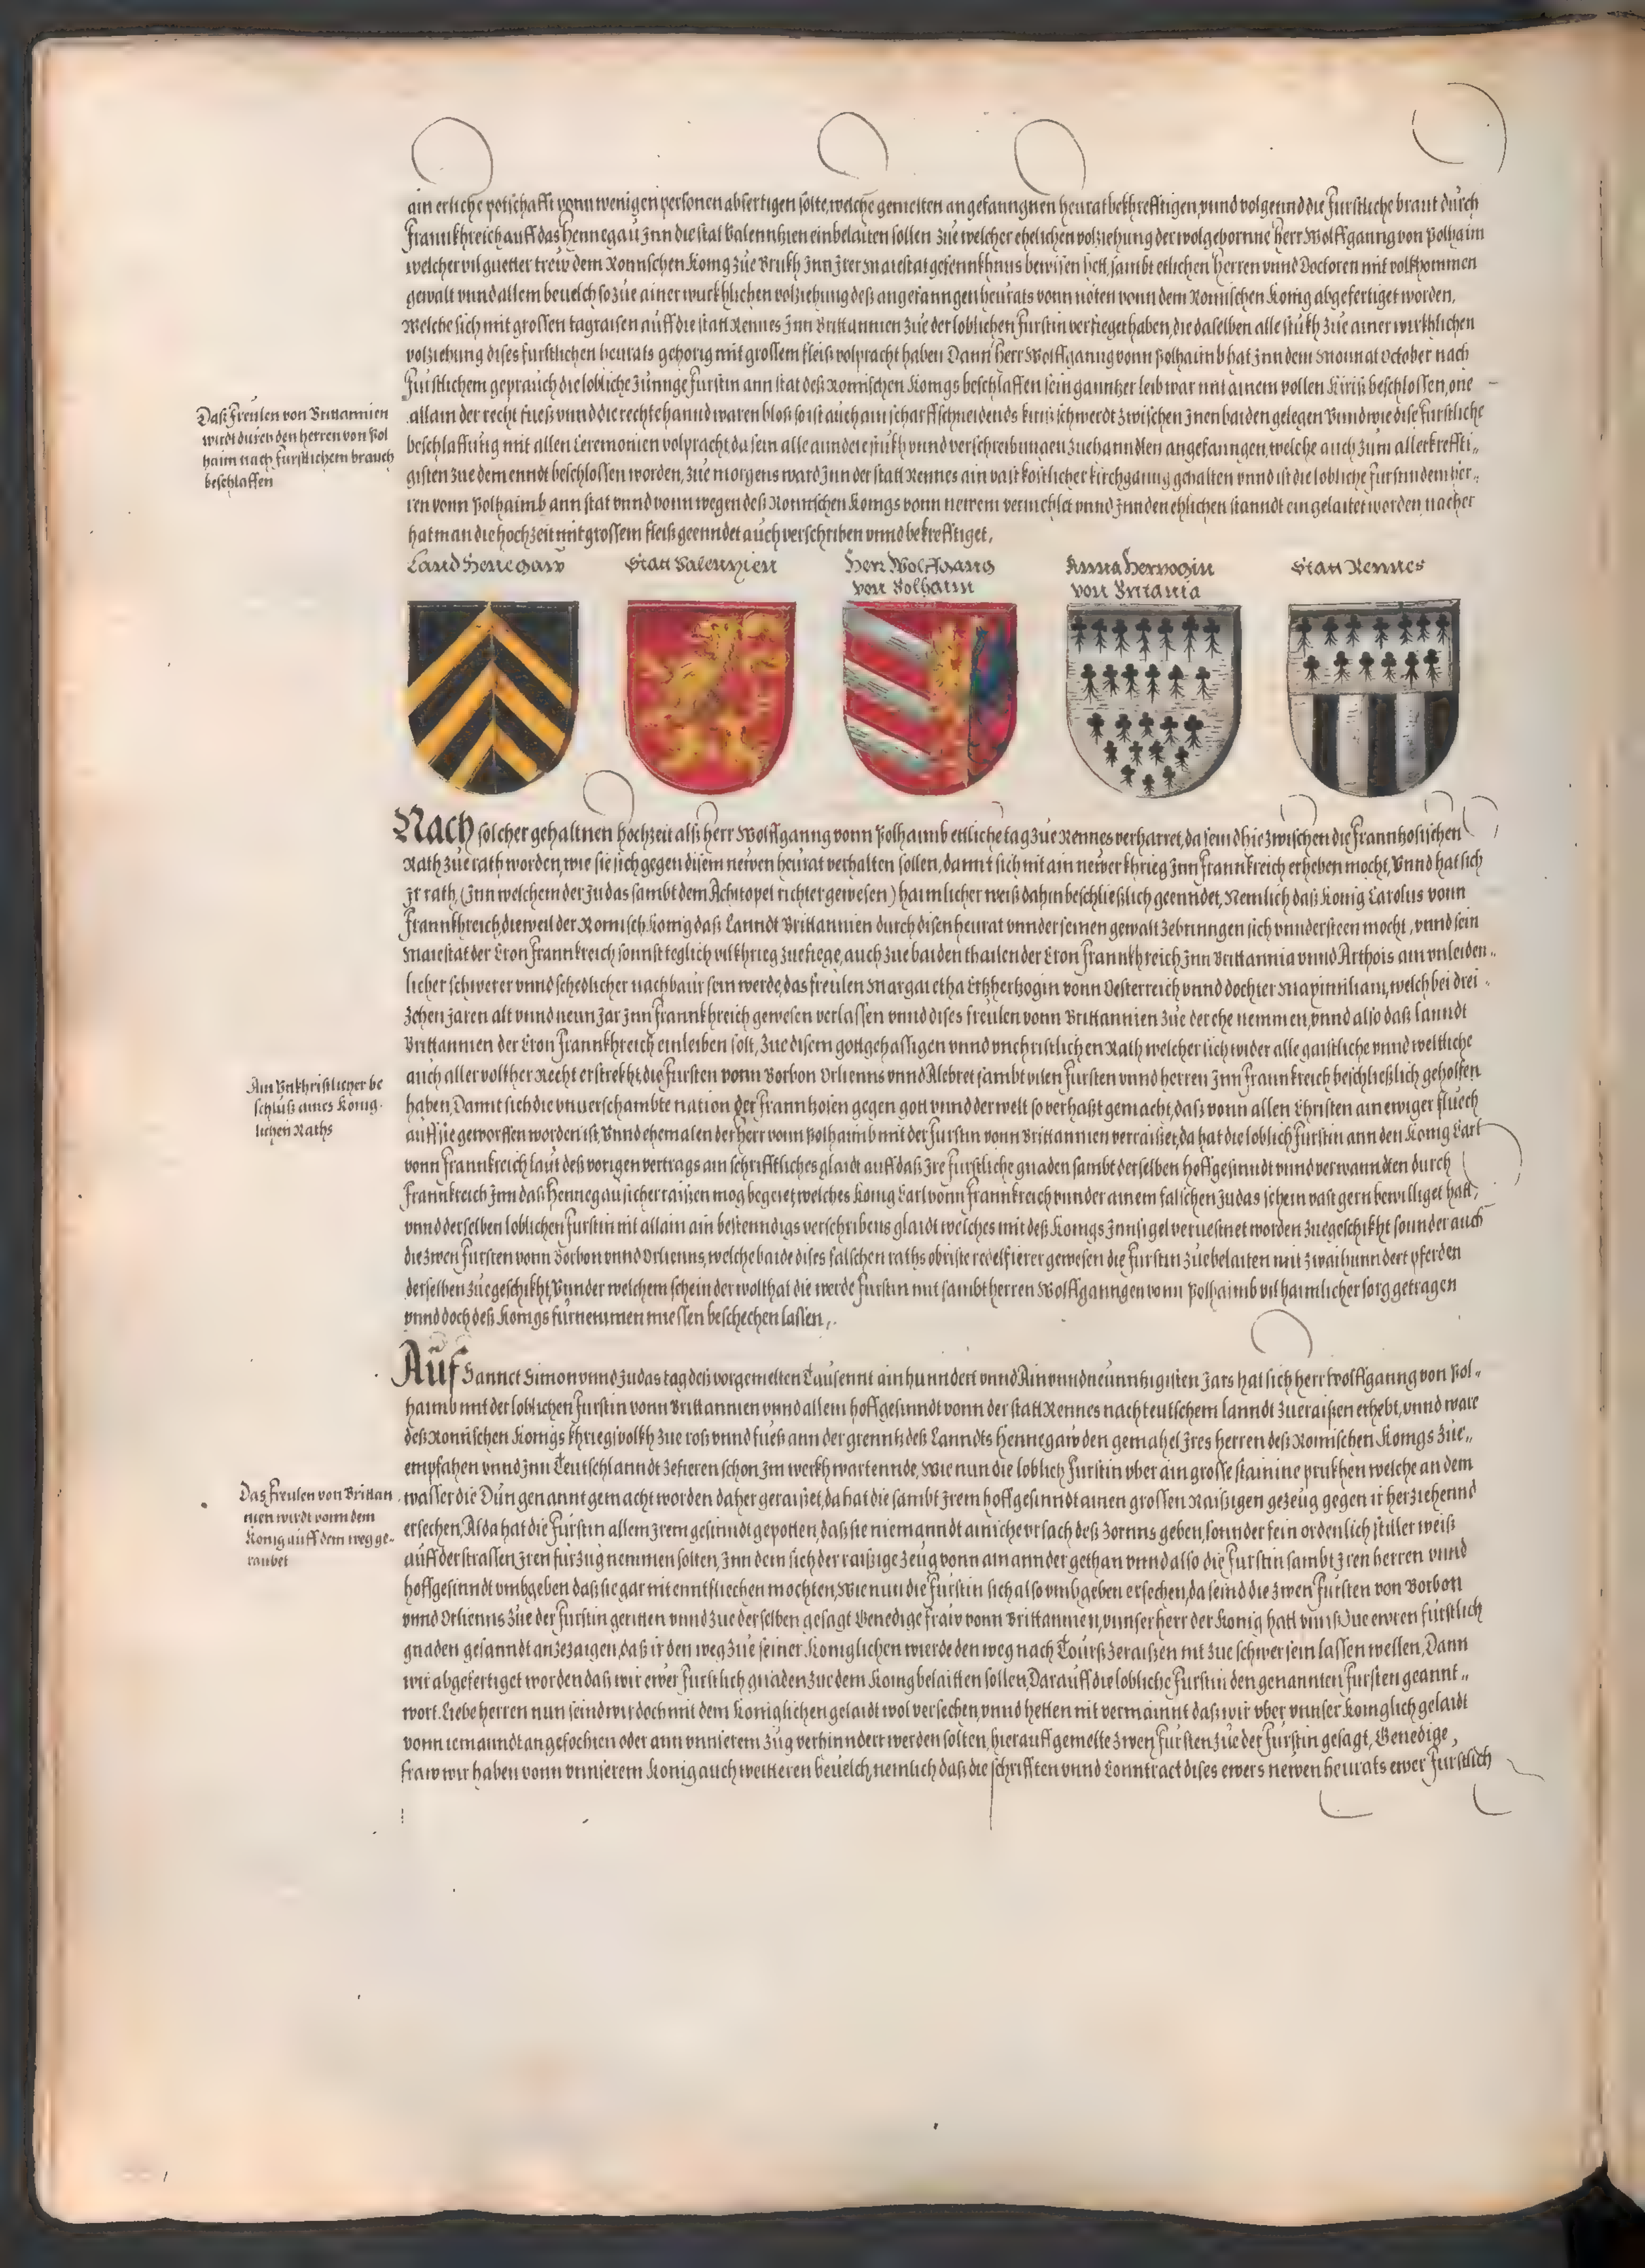 ain erliche potschafft vonn wenigen personen abfertigen solte, welche gemelten angefanngnen heurat bekhrefftigen, vnnd volgennd die furstliche braut durch
Frannkhreich auff das Hennegaü Jnn die stat Valenntzien einbelaiten sollen Züe welcher ehelichen volziehung der wolgebornne Herr Wolffganng von Polhaim
welcher vil guetter trew dem Romischen Konig züe Brukh Jnn Jrer Maiestat gefennkhnus bewisen hett, sambt etlichen Herren vnnd Doctoren mit volkhommen
gewalt vnnd allem beuelch so züe ainer wurkhlichen volziehung deß angefanngen heurats vonn nöten vonn dem Romischen Konig abgefertiget worden,
Welche sich mit grossen tagraisen auff die statt Rennes Jnn Brittannien züe der loblichen Furstin verfieget haben, die daselben alle stukh züe ainer wirkhlichen
volziehung dises furstlichen heurats gehorig mit grossem fleiß volpracht haben Dann Herr Wolffganng vonn Polhaimb hat Jnn dem Mounat October nach
Fürstlichem geprauch die lobliche Jünnge Furstin ann stat deß Romischen Konigs beschlaffen sein ganntzer leib war mit ainem vollen Kiriß beschlossen, one
allain der recht fueß vnnd die rechte hannd waren bloß so ist auch ain scharff schneidends kuriß schwerdt zwischen Jnen baiden gelegen Vnnd wie dise furstliche
beschlaffüng mit allen Ceremonien volpracht da sein alle anndere stukh vnnd verschreibungen zuehanndlen angefanngen, welche auch zum allerkreffti-
gisten zue dem enndt beschlossen worden, züe morgens ward Jnn der statt Rennes ain vast kostlicher kirchganng gehalten vnnd ist die lobliche Furstin dem Her-
ren vonn Polhaimb ann stat vnnd vonn wegen deß Romischen Konigs vonn newem vermehlet vnnd Jnn den ehlichen stanndt eingelaitet worden nacher
hat man die hochzeit mit grossem fleiß geenndet auch verschriben vnnd bekrefftiget,
Daß Freulen von Brittannien
wirdt durch den herren von Pol
haim nach furstlichem brauch
beschlaffen
Land Henegaw
Statt Valenzien
Herr Wolffgang
von Polhaim
Anna Hertzogin
von Britania
Statt Rennes
Nach solcher gehaltnen hochzeit alß Herr Wolffganng vonn Polhaimb ettliche tag züe Rennes verharret, da seind hie zwischen die Frannzosischen
Rath züe rath worden, wie sie sich gegen disem newen heurat verhalten sollen, damit sich nit ain newer khrieg Jnn Frannkreich erheben mocht, Vnnd hat sich
Jr rath, (Jnn welchem der Judas sambt dem Achitopel richter gewesen) haimlicher weiß dahin beschließlich geenndet, Nemlich daß Konig Carolus vonn
Frannkhreich dieweil der Romisch Konig daß Lanndt Brittannien durch disen heurat vnnder seinen gewalt zebrinngen sich vnndersteen mocht, vnnd sein
Maiestat der Cron Frannkreich sonnst teglich vil khrieg zuefiege, auch zue baiden thailen der Cron Frannkhreich Jnn Brittannia vnnd Arthois ain vnleiden-
licher schwerer vnnd schedlicher nachbaür sein werde, das freulen Margaretha Ertzhertzogin vonn Oesterreich vnnd dochter Maximiliani, welch bei drei-
zehen Jaren alt vnnd neun Jar Jnn Frannkhreich gewesen verlassen vnnd dises freulen vonn Brittannien züe der ehe nemmen, vnnd also daß lanndt
Brittannien der Cron Frannkhreich einleiben solt, züe disem gottgehassigen vnnd vnchristlichen Rath welcher sich wider alle gaistliche vnnd weltliche
auch aller volkher Recht erstrekht, die Fursten vonn Borbon Orlienns vnnd Alebret sambt vilen Fursten vnnd herren Jnn Frannkreich beschließlich geholfen
haben, Damit sich die vnuerschambte nation der Frannzosen gegen gott vnnd der welt so verhaßt gemacht, daß vonn allen Christen ain ewiger fluech
auff sie geworffen worden ist, Vnnd ehemalen der Herr vonn Polhaimb mit der furstin vonn Brittannien verraisset, da hat die loblich Furstin ann den Konig Carl
vonn Frannkreich laut deß vorigen vertrags ain schrifftliches glaidt auff daß Jre furstliche gnaden sambt derselben hoffgesinndt vnnd verwanndten durch
Frannkreich Jnn daß Hennegaü sicher raissen mog begeret, welches Konig Carl vonn Frannkreich vnnder ainem falschen Judas schein vast gern bewilliget hatt,
vnnd derselben loblichen Furstin nit allain ain bestenndigs verschribens glaidt welches mit deß Konigs Jnnsigel veruestnet worden zuegeschikht sonnder auch
die zwen Fursten vonn Borbon vnnd Orlienns, welche baide dises falschen raths obriste redelfierer gewesen die Furstin zuebelaiten mit zwaihunndert pferden
derselben züegeschikht, Vnnder welchem schein der wolthat die werde Furstin mit sambt herren Wolffganngen vonn Polhaimb vil haimlicher sorg getragen
vnnd doch deß Konigs fürnemmen miessen beschechen lassen,
Ain Vnkhristlicher be
schluß aines König-
lichen Raths
Aüf Sannct Simon vnnd Judas tag deß vorgemelten Tausennt ainhunndert vnnd Ainvnndneünntzigisten Jars hat sich herr Wolffganng von Pol-
haimb mit der loblichen Furstin vonn Brittannien vnnd allem hoffgesinndt vonn der statt Rennes nach teutschem lanndt züeraißen erhebt, vnnd ware
deß Romischen Konigs khriegßvolkh züe roß vnnd fueß ann der grenntz deß Lanndts Hennegaw den gemahel Jres herren deß Romischen Konigs züe-
empfahen vnnd Jnn Teutschlanndt zefieren schon Jm werkh wartennde, Wie nun die loblich Furstin vber ain grosse stainine prukhen welche an dem
wasser die Dün genannt gemacht worden daher geraißet, da hat die sambt Jrem hoffgesinndt ainen grossen Raißigen gezeüg gegen ir herziehennd
ersechen, Alda hat die Furstin allem Jrem gesinndt gepotten, daß sie niemanndt ainiche vrsach deß Zornns geben, sonnder fein ordenlich stiller weiß
auff der strassen Jren fürzüg nemmen solten, Jnn dem sich der raißige zeüg vonn ainannder gethan vnnd also die Furstin sambt Jren herren vnnd
hoffgesinndt vmbgeben daß sie gar nit enntfliechen mochten, Wie nun die Furstin sich also vmbgeben ersechen, da seind die zwen Fursten von Borbon
vnnd Orlienns züe der Furstin geritten vnnd züe derselben gesagt Genedige fraw vonn Brittannien, vnnser herr der Konig hatt vnnß züe ewren fürstlich
gnaden gesanndt anzezaigen, daß ir den weg züe seiner Koniglichen wierde den weg nach Tourß zeraißen nit züe schwer sein lassen wellen, Dann
wir abgefertiget worden daß wir ewer Furstlich gnaden züe dem Konig belaitten sollen, Darauff die lobliche Furstin den genannten fursten geannt-
wort. Liebe herren nun seind wir doch mit dem Koniglichen gelaidt wol versechen, vnnd hetten nit vermainnt daß wir vber vnnser koniglich gelaidt
vonn iemanndt angefochten oder ann vnnserem züg verhinndert werden solten, hierauff gemelte zwen Fursten züe der Furstin gesagt, Genedige,
fraw wir haben vonn vnnserem Konig auch weitteren beuelch, nemlich daß die schrifften vnnd Conntract dises ewers newen heurats ewer Furstlich
Das Freulen von Brittan
nien wirdt vonn dem
Konig auff dem weg ge-
raubet